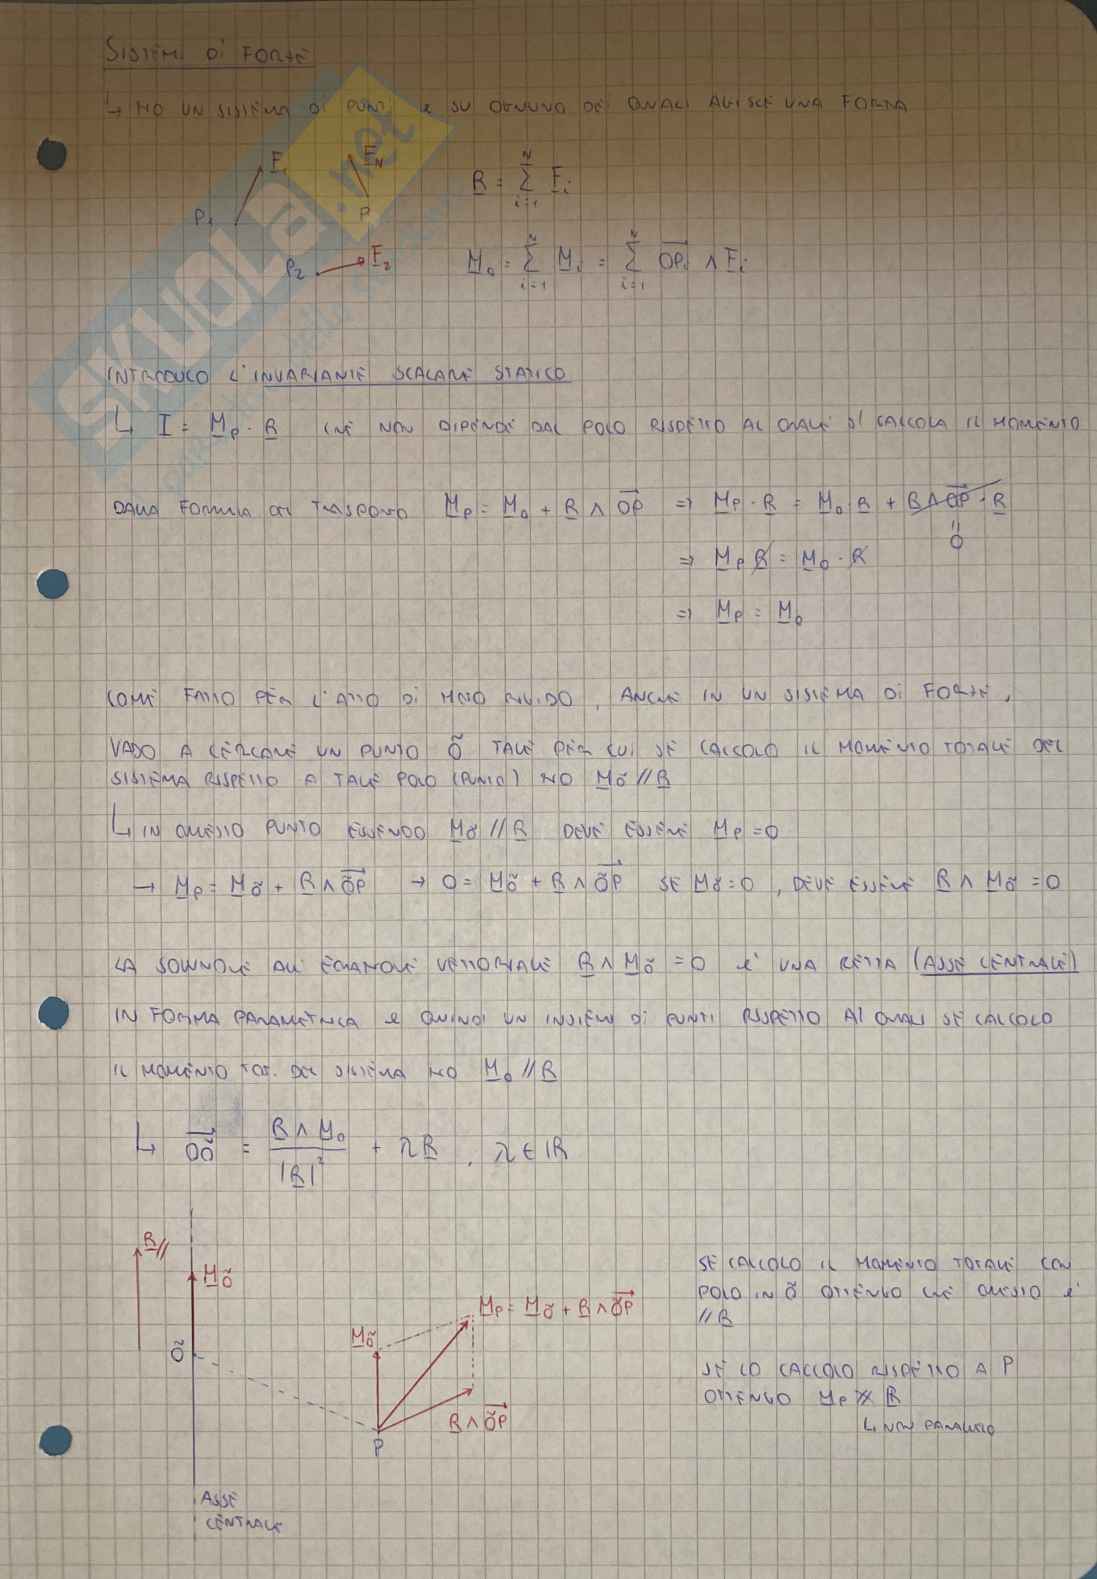 SISTEMI DI FORZE
↳ HO UN SISTEMA DI PUNTI E SU OGNUNO DEI QUALI AGISCE UNA FORZA
P₁ F₁ Fₙ P
P₂ F₂
R = Σ_{i=1}^{N} F_i
M_o = Σ_{i=1}^{N} M_i = Σ_{i=1}^{N} OP_i ∧ F_i
SKUOLA.net
INTRODUCO L'INVARIANTE SCALARE STATICO
↳ I = M_P · R CHE NON DIPENDE DAL POLO RISPETTO AL QUALE SI CALCOLA IL MOMENTO
DALLA FORMULA DEL TRASPORTO M_P = M_O + R ∧ OP ⇒ M_P · R = M_O R + R ∧ OP · R
= 0
⇒ M_P R = M_O · R
⇒ M_P = M_O
COME FATTO PER L'ATTO DI MOTO RIGIDO, ANCHE IN UN SISTEMA DI FORZE,
VADO A CERCARE UN PUNTO Õ TALE PER CUI SE CALCOLO IL MOMENTO TOTALE DEL
SISTEMA RISPETTO A TALE POLO (PUNTO) HO M_Õ // R
↳ IN QUESTO PUNTO ESSENDO M_Õ // R DEVE ESSERE M_P = 0
→ M_P = M_Õ + R ∧ ÕP → 0 = M_Õ + R ∧ ÕP SE M_Õ = 0, DEVE ESSERE R ∧ M_Õ = 0
LA SOLUZIONE ALL'EQUAZIONE VETTORIALE R ∧ M_Õ = 0 E' UNA RETTA (ASSE CENTRALE)
IN FORMA PARAMETRICA E QUINDI UN INSIEME DI PUNTI RISPETTO AI QUALI SE CALCOLO
IL MOMENTO TOT. DEL SISTEMA HO M_O // R
↳ OÕ = (R ∧ M_O) / |R|² + λR, λ ∈ ℝ
R //
M_Õ
Õ
M_Õ
M_P = M_Õ + R ∧ ÕP
R ∧ ÕP
P
ASSE
CENTRALE
SE CALCOLO IL MOMENTO TOTALE CON
POLO IN Õ OTTENGO CHE QUESTO E'
// R
SE LO CALCOLO RISPETTO A P
OTTENGO M_P ∦ R
↳ NON PARALLELO